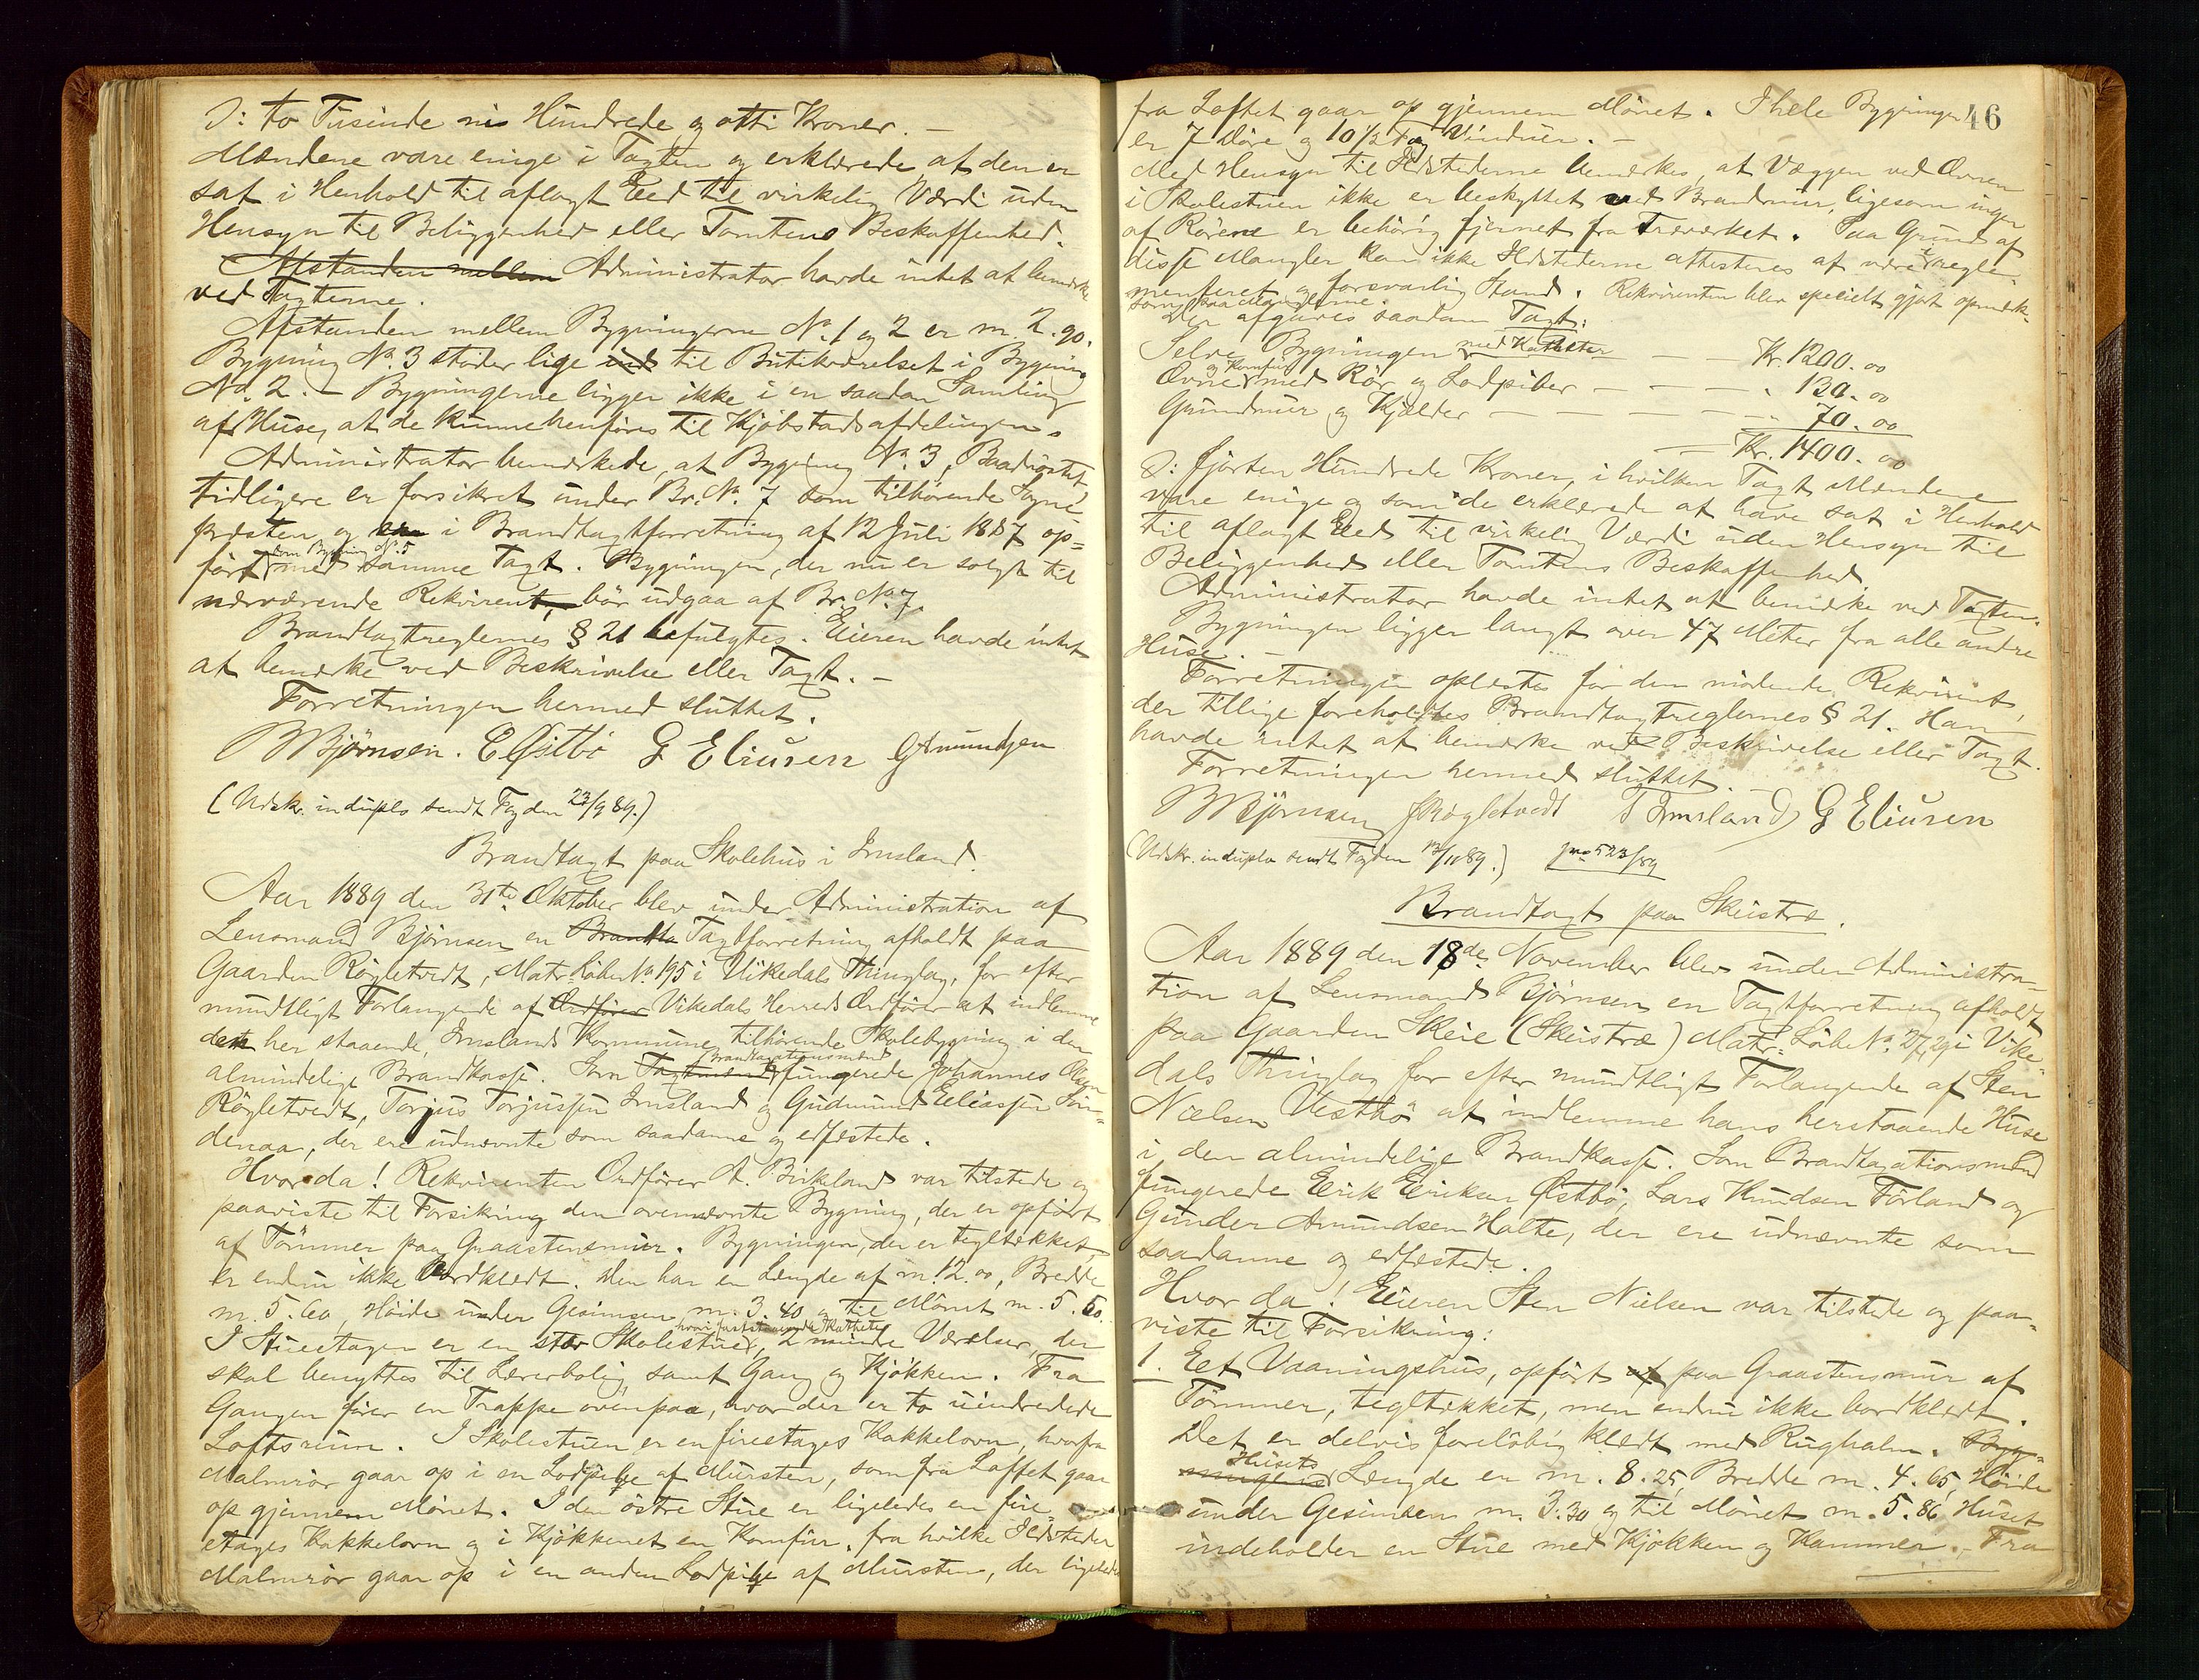 ɔ: to Tusinde ni Hundrede og otti Kroner. –
Mændene vare enige i Taxten og erklærede, at den er
sat i Henhold til aflagt Eed til virkelig Værdi uden
Hensyn til Beliggenhed eller Tomtens Beskaffenhed.
Afstanden mellem Administrator havde intet at bemærke
ved Taxterne.
Afstanden mellem Bygningerne No. 1 og 2 er m. 2.90.
Bygning No. 3 støder lige ind til Butikværelset i Bygning
No. 2. – Bygningerne ligger ikke i en saadan Samling
af Huse, at de kunne henføres til Kjøbstadsafdelingen.
Administrator bemærkede, at Bygning No. 3, Baadnøstet,
tidligere er forsikret under Br. No. 7 som tilhørende Sogne
præsten og i Brandtaxtforretning af 12 Juli 1887 op=
ført som Bygning No. 5 med samme Taxt. Bygningen, der nu er solgt til
nærværende Rekvirent, bør udgaa af Br. No. 7.
Brandtaxtreglernes § 21 befulgtes. Eieren havde intet
at bemærke ved Beskrivelse eller Taxt. –
Forretningen hermed sluttet.
B Bjørnsen. E Østbö G Eliusen G Amundsen
(Udskr. in duplo sendt Fogden 23/9 89.)
Brandtaxt paa Skolehus i Imsland.
Aar 1889 den 31te Oktober blev under Administration af
Lensmand Bjørnsen en Brandta Taxtforretning afholdt paa
Gaarden Røgletvedt, Matr. Løbe No. 195 i Vikedals Thinglag, for efter
mundtligt Forlangende af Ordfører Vikedals Herreds Ordfører at indlemme
den her staaende, Imslands Kommune tilhørende Skolebygning i den
almindelige Brandkasse. Som Taxtmænd Brandtaxationsmænd fungerede Johannes Olsen
Røgletvedt, Torjus Torjussen Imsland og Gudmund Eeliassen Søn-
denaa, der ere udnævnte som saadanne og edfæstede.
Hvor da! Rekvirenten Ordfører A. Birkeland var tilstede og
paaviste til Forsikring den ovennævnte Bygning, der er opført
af Tømmer paa Graastensmur. Bygningen, der er tegltækket,
er endnu ikke bordklædt. Den har en Længde af m. 12.00, Bredde
m. 5.60, Høide under Gesimsen m. 3.40 og til Mønet m. 5.60.
I Stueetagen er en stor Skolestue, hvori fastsiddende Katheter, 2 mindre Værelser, der
skal benyttes til Lærerbolig samt Gang og Kjøkken. Fra
Gangen fører en Trappe ovenpaa, hvor der er to uindredede
Loftsrum. I Skolestuen er en fireetages Kakkelovn, hvorfra
Malmrør gaar op i en Lodpibe af Mursten, som fra Loftet gaar
op gjennem Mønet. I den østre Stue er ligeledes en fire-
etages Kakkelovn og i Kjøkkenet en Komfur, fra hvilke Ildsteder
Malmrør gaar op i en anden Lodpibe af Mursten, der ligeledes
46
fra Loftet gaar op gjennem Mønet. I hele Bygningen
er 7 Døre og 10 1/2 Fag Vinduer. –
Med Hensyn til Ildstederne bemærkes, at Væggen ved Ovnen
i Skolestuen ikke er beskyttet ved Brandmur, ligesom ingen
af Rørene er behørig fjernet fra Træværket. Paa Grund af
disse Mangler kan ikke Ildstederne attesteres at være i regle-
menteret og forsvarlig Stand. Rekvirenten blev specielt gjort opmærk-
som paa Manglerne.
Der afgaves saadan Taxt:
Selve Bygningen med Katheter – – Kr. 1200.00
Ovne og Komfur med Rør og Lodpiber – – – – „ 130.00
Grundmur og Kjælder – – – – – „ 70.00
– Kr. 1400.00
ɔ: fjorten Hundrede Kroner, i hvilken Taxt Mændene
vare enige og som de erklærede at have sat i Henhold
til aflagt Eed til virkelig Værdi uden Hensyn til
Beliggenhed eller Tomtens Beskaffenhed.
Administrator havde intet at bemærke ved Taxten.
Bygningen ligger langt over 47 Meter fra alle andre
Huse. –
Forretningen oplæstes for den mødende Rekvirent,
der tillige foreholdtes Brandtaxtreglernes § 21. Han
havde intet at bemærke ved Beskrivelse eller Taxt.
Forretningen hermed sluttet.
B Bjørnsen J Røgletvedt T Imsland G Eliusen
(Udskr. in duplo sendt Fogden 13/11 89.) jno 523/89
Brandtaxt paa Skeistræ.
Aar 1889 den 18de November blev under Administra-
tion af Lensmand Bjørnsen en Taxtforretning afholdt
paa Gaarden Skeie (Skeistræ) Matr. Løbe No. 27, 29 i Vike
dals Thinglag for efter mundtligt Forlangende af Sten
Nielsen Vestbø at indlemme hans herstaaende Huse
i den almindelige Brandkasse. Som Brandtaxationsmænd
fungerede Eerik Eeriksen Østbø, Lars Knudsen Førland og
Gunder Amundsen Halte, der ere udnævnte som
saadanne og edfæstede.
Hvor da! Eieren Sten Nielsen var tilstede og paa-
viste til Forsikring:
1. Eet Vaaningshus, opført af paa Graastensmur af
Tømmer, tegltækket, men endnu ikke bordklædt.
Det er delvis foreløbig klædt med Rughalm. Byg-
ningens Husets Længde er m. 8.25, Bredde m. 4.65, Høide
under Gesimsen m. 3.30 og til Mønet m. 5.86. Huset
indeholder en Stue med Kjøkken og Kammer. Fra